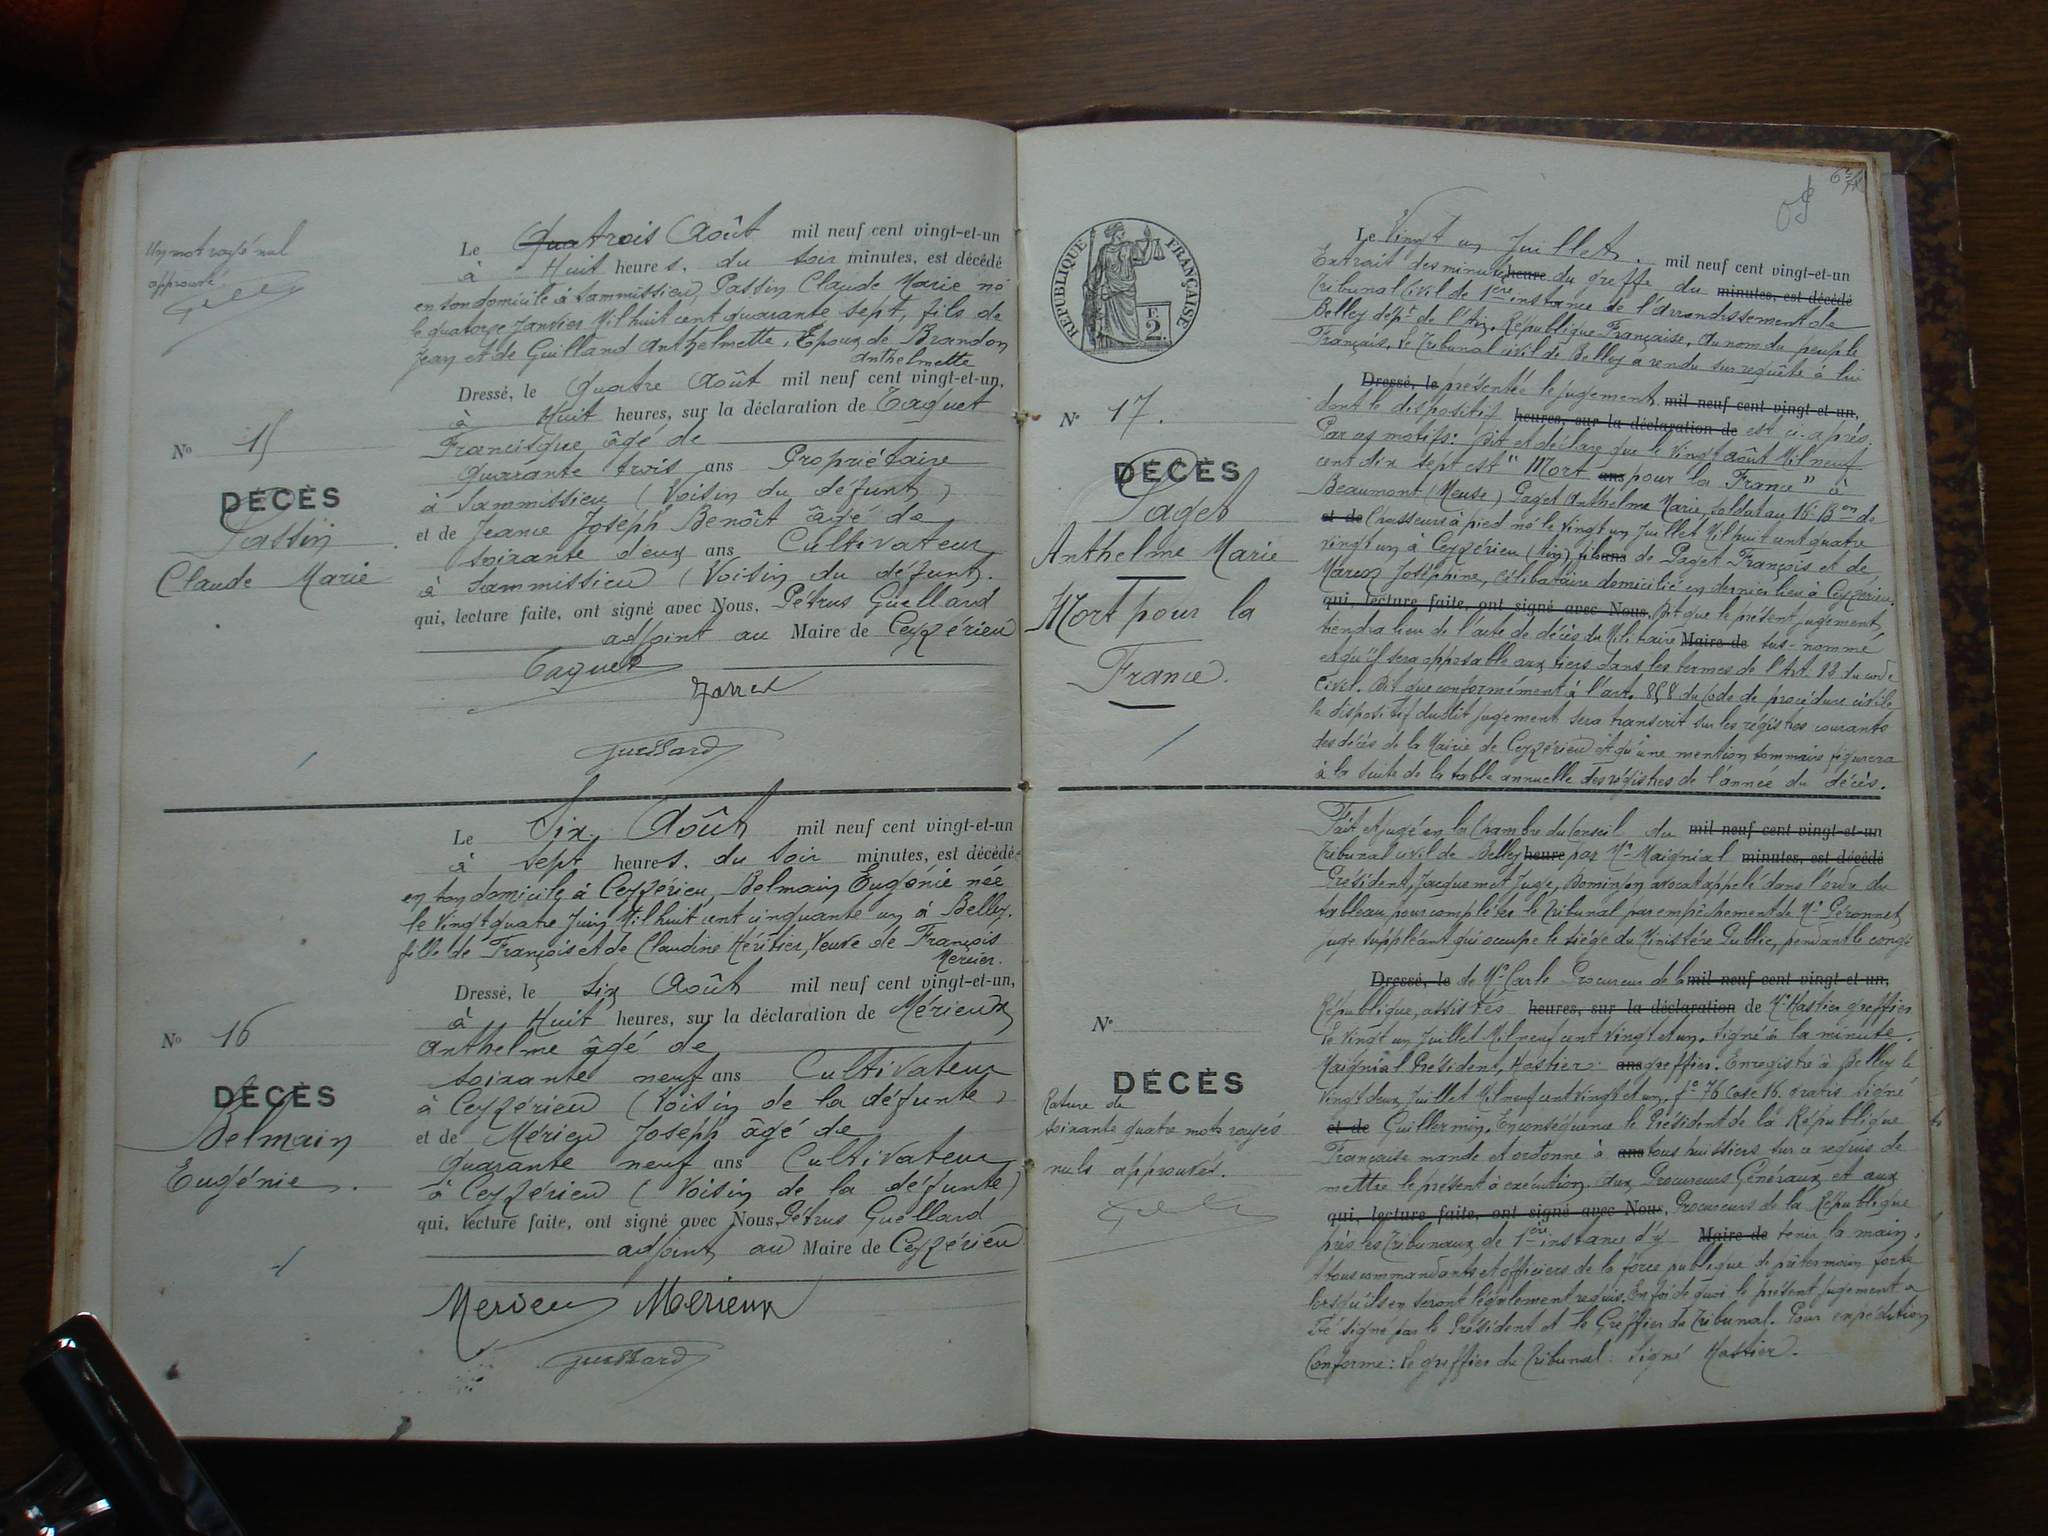 Un mot rayé nul
approuvé
Le Quatrois Août mil neuf cent vingt-et-un
à Huit heures. du soir minutes, est décédé
en son domicile à Sammissieu, Passin Claude Marie né
le quatorze Janvier Mil huit cent quarante sept, fils de
Jean et de Guilland Anthelmette, Epoux de Brandon
Anthelmette
Dressé, le Quatre Août mil neuf cent vingt-et-un,
à Huit heures, sur la déclaration de Taguet
Francisque âgé de
quarante trois ans Propriétaire
à Sammissieu (Voisin du défunt)
et de Jeance Joseph Benoît âgé de
soixante deux ans Cultivateur
à Sammissieu (Voisin du défunt.
qui, lecture faite, ont signé avec Nous, Pétrus Guellard
adjoint au Maire de Ceyzérieu
Taguet
Guellard
No 15
DÉCÈS
Passin
Claude Marie
Le Six Août mil neuf cent vingt-et-un
à sept heures. du soir minutes, est décédée
en son domicile à Ceyzérieu, Belmain Eugénie née
le Vingt quatre Juin Mil huit cent cinquante un à Belley.
fille de François et de Claudine Héritier, Veuve de François
Mercier.
Dressé, le Six Août mil neuf cent vingt-et-un,
à Huit heures, sur la déclaration de Mérieux
Anthelme âgé de
soixante neuf ans Cultivateur
à Ceyzérieu (Voisin de la défunte)
et de Mérieu Joseph âgé de
quarante neuf ans Cultivateur
à Ceyzérieu (Voisin de la défunte)
qui, lecture faite, ont signé avec Nous, Pétrus Guellard
adjoint au Maire de Ceyzérieu
Merieu Mérieux
Guellard
No 16
DÉCÈS
Belmain
Eugénie.
RÉPUBLIQUE FRANÇAISE
F.
2.
No 17.
DÉCÈS
Paget
Anthelme Marie
Mort pour la
France.
Le Vingt un Juillet. mil neuf cent vingt-et-un
Extrait des minutes heure du greffe du minutes, est décédé
Tribunal Civil de 1ère instance de l'Arrondissement de
Belley dépt de l'Ain. République Française. Au nom du peuple
Français. Le Tribunal civil de Belley a rendu sur requête à lui
Dressé, le présentée le jugement mil neuf cent vingt-et-un,
dont le dispositif heures, sur la déclaration de est ci-après.
Par ces motifs: Dit et déclare que le Vingt août Mil neuf
cent dix sept est "Mort ans pour la France" à
Beaumont (Meuse) Paget Anthelme Marie, soldat au 16e Bon de
et de Chasseurs à pied né le Vingt un Juillet Mil huit cent quatre
vingt un à Ceyzérieu (Ain) fils ans de Paget François et de
Joséphine, Célibataire domicilié en dernier lieu à Ceyzérieu.
qui, lecture faite, ont signé avec Nous, Dit que le présent jugement,
tiendra lieu de l'acte de décès du Militaire Maire de sus-nommé
et qu'il sera opposable aux tiers dans les termes de l'Art. du code
Civil. Dit que conformément à l'art. 858 du Code de procédure civile
le dispositif dudit jugement sera transcrit sur les régistres courants
des décès de la Mairie de Ceyzérieu et qu'une mention sommaire figurera
à la suite de la table annuelle des régistres de l'année du décès.
Fait et jugé en la Chambre du Conseil du mil neuf cent vingt-et-un
Tribunal civil de Belley heure par Mr Maignial minutes, est décédé
Président, Jacquemet Juge, avocat appelé dans l'ordre du
tableau pour compléter le Tribunal par empêchement de Mr Péronnet,
juge suppléant qui occupe le siège du Ministère Public, pendant le congé
Dressé, le de Mr Carle Procureur de la mil neuf cent vingt-et-un,
République, assistés heures, sur la déclaration de Mr Hastier greffier
Le Vingt un Juillet Mil neuf cent vingt et un. signé à la minute.
Maignial Président, Hastier: ans greffier. Enregistré à Belley le
Vingt deux Juillet Mil neuf cent vingt et un. fo 76 Case 16. Gratis signé
et de Guillermin. En conséquence le Président de la République
Française mande et ordonne à ans tous huissiers sur ce requis de
mettre le présent à exécution. aux Procureurs Généraux et aux
qui, lecture faite, ont signé avec Nous, Procureurs de la République
près les Tribunaux de 1ère instance d'y Maire de tenir la main,
A tous commandants et officiers de la force publique de prêter main forte
lorsqu'ils en seront légalement requis. En foi de quoi le présent jugement a
Eté signé par le Président et le Greffier du Tribunal. Pour expédition
Conforme: le greffier du Tribunal: Signé Hastier.
No
DÉCÈS
Rature de
soixante quatre mots rayés
nuls approuvés.